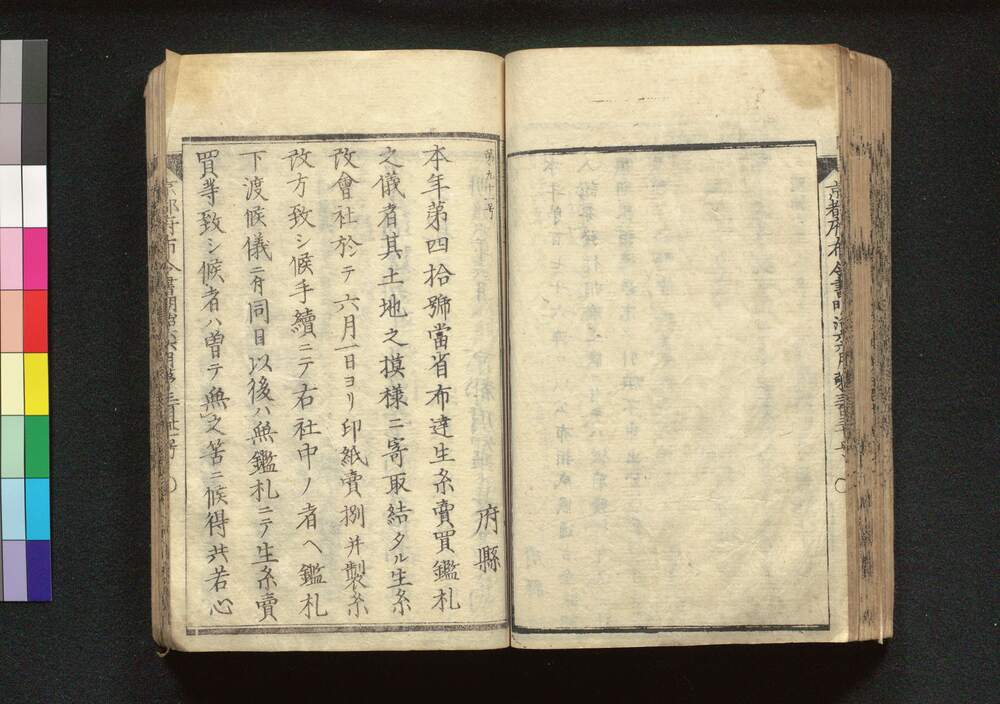 第九十一号
府縣
本年第四拾號當省布達生糸賣買鑑札
之儀者其土地之摸様ニ寄取結タル生糸
改會社於シテ六月一日ヨリ印紙賣捌并製糸
改方致シ候手續ニテ右社中ノ者ヘ鑑札
下渡候儀ニ付同日以後ハ無鑑札ニテ生糸賣
買等致シ候者ハ曽テ無之筈ニ候得共若心
京都府布令書明治六年六月第三百廿一号